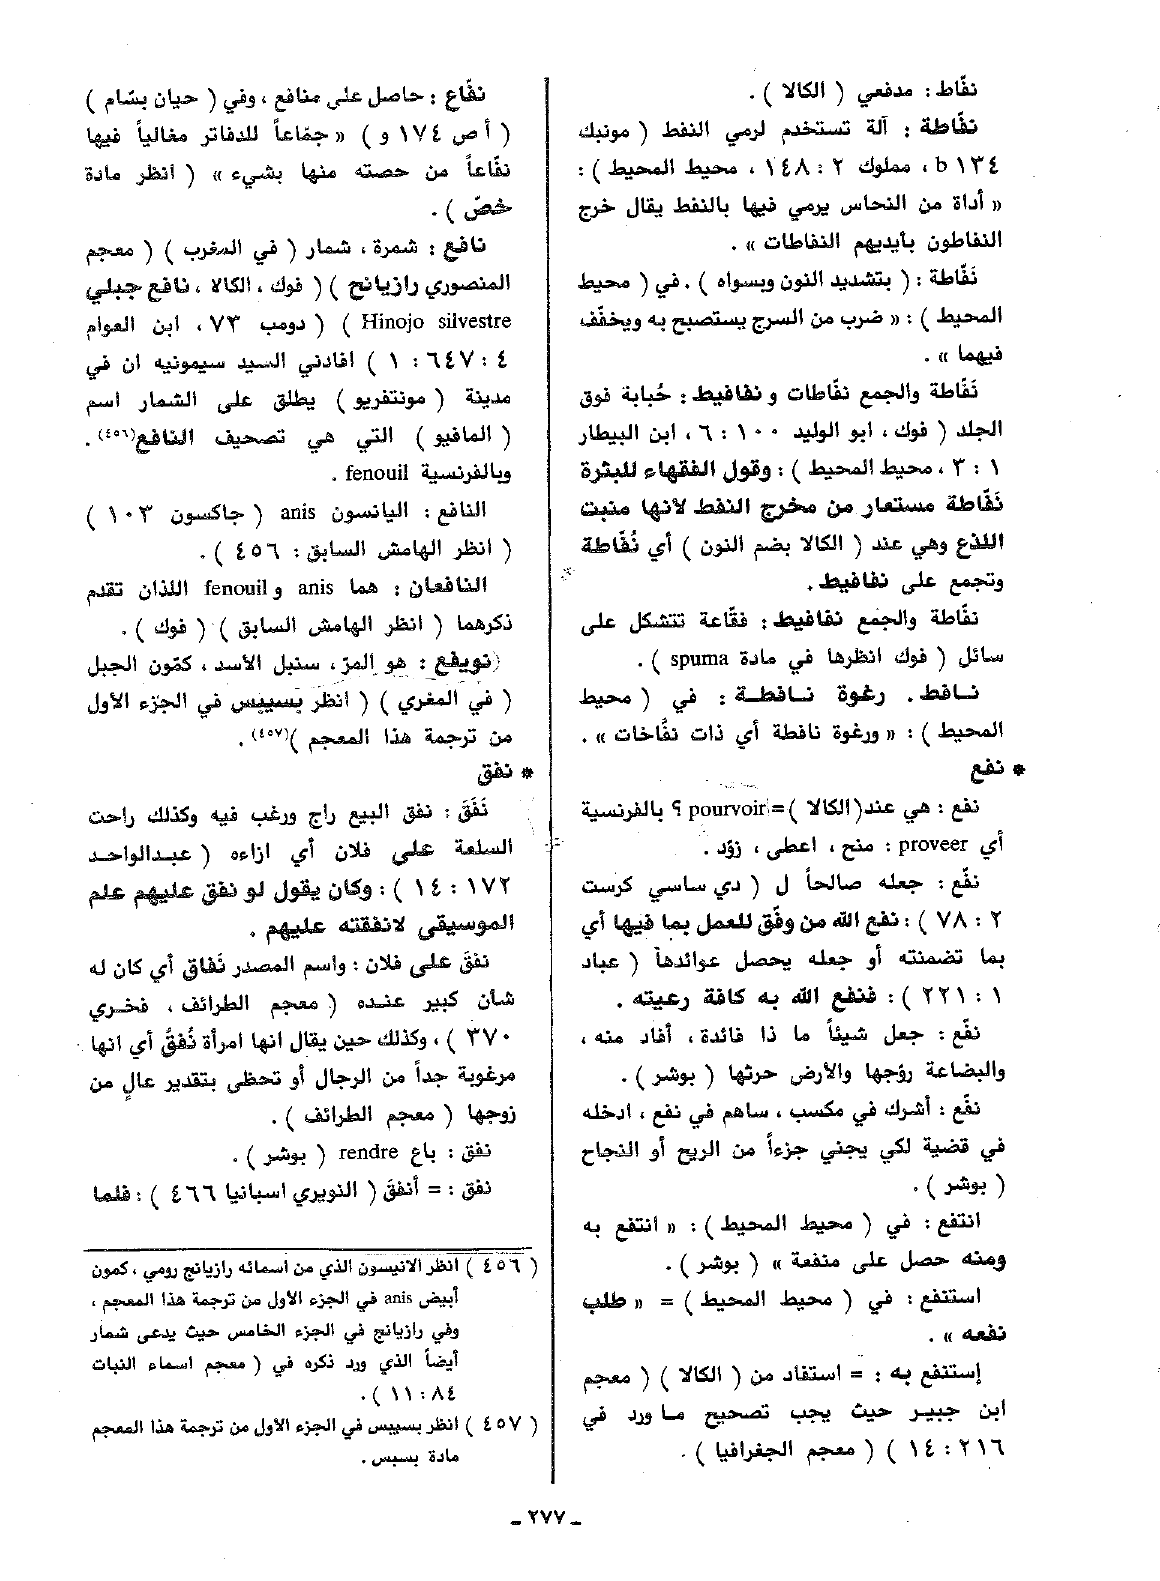 نفّاط: مدفعي ( الكالا ) .
نفّاطة : آلة تستخدم لرمي النفط ( مونبك
١٣٤ b ، مملوك ٢ : ١٤٨ ، محيط المحيط ) :
« أداة من النحاس يرمي فيها بالنفط يقال خرج
النفاطون بأيديهم النفاطات » .
نَفّاطة : ( بتشديد النون وبسواه ) . في ( محيط
المحيط ) : « ضرب من السرج يستصبح به ويخفّف
فيهما » .
نَفّاطة والجمع نفّاطات و نفافيط : حُبابة فوق
الجلد ( فوك ، ابو الوليد ١٠٠ : ٦ ، ابن البيطار
١ : ٣ ، محيط المحيط ) : وقول الفقهاء للبثرة
نَفّاطة مستعار من مخرج النفط لانها منبت
اللذع وهي عند ( الكالا بضم النون ) أي نُفّاطة
وتجمع على نفافيط .
نفّاطة والجمع نفافيط : فقّاعة تتشكل على
سائل ( فوك انظرها في مادة spuma ) .
نـافـط . رغوة نـافـطـة : في ( محيط
المحيط ) : « ورغوة نافطة أي ذات نفّاخات » .
* نفع
نفع : هي عند( الكالا )= pourvoir ؟ بالفرنسية
أي proveer : منح ، اعطى ، زوّد .
نفّع : جعله صالحاً ل ( دي ساسي كرست
٢ : ٧٨ ) : نفع الله من وفّق للعمل بما فيها أي
بما تضمنته أو جعله يحصل عوائدها ( عباد
١ : ٢٢١ ) : فنفع الله به كافة رعيته .
نفّع : جعل شيئاً ما ذا فائدة ، أفاد منه ،
والبضاعة روّجها والأرض حرثها ( بوشر ) .
نفّع : أشرك في مكسب ، ساهم في نفع ، ادخله
في قضية لكي يجني جزءاً من الربح أو النجاح
( بوشر ) .
انتفع : في ( محيط المحيط ) : « انتفع به
ومنه حصل على منفعة » ( بوشر ) .
استنفع : في ( محيط المحيط ) = « طلب
نفعه » .
إستنفع به : = استفاد من ( الكالا ) ( معجم
ابن جبير حيث يجب تصحيح مـا ورد في
٢١٦ : ١٤ ) ( معجم الجغرافيا ) .
نفّاع : حاصل على منافع ، وفي ( حيان بسّام )
( أ ص ١٧٤ و ) « جمّاعاً للدفاتر مغالياً فيها
نفّاعاً من حصته منها بشيء » ( انظر مادة
خصّ ) .
نافع : شمرة ، شمار ( في المغرب ) ( معجم
المنصوري رازيانج ) ( فوك ، الكالا ، نافع جبلي
Hinojo silvestre ) ( دومب ٧٣ ، ابن العوام
٤ : ٦٤٧ : ١ ) افادني السيد سيمونيه ان في
مدينة ( مونتفريو ) يطلق على الشمار اسم
( المافيو ) التي هي تصحيف النافع(٤٥٦) .
وبالفرنسية fenouil .
النافع : اليانسون anis ( جاكسون ١٠٣ )
( انظر الهامش السابق : ٤٥٦ ) .
النافعان : هما anis و fenouil اللذان تقدم
ذكرهما ( انظر الهامش السابق ) ( فوك ) .
(نويفع : هو المرّ ، سنبل الأسد ، كمّون الجبل
( في المغري ) ( انظر بسيبس في الجزء الأول
من ترجمة هذا المعجم )(٤٥٧) .
* نفق
نَفَقَ : نفق البيع راج ورغب فيه وكذلك راحت
السلعة على فلان أي ازاءه ( عبـدالواحـد
١٧٢ : ١٤ ) : وكان يقول لو نفق عليهم علم
الموسيقى لانفقته عليهم .
نفقَ على فلان : واسم المصدر نَفاق أي كان له
شأن كبير عنـده ( معجم الطرائف ، فخـري
٣٧٠ ) ، وكذلك حين يقال انها امرأة نُفقُ أي انها
مرغوبة جداً من الرجال أو تحظى بتقدير عالٍ من
زوجها ( معجم الطرائف ) .
نفق : باع rendre ( بوشر ) .
نفق : = أنفقَ ( النويري اسبانيا ٤٦٦ ) : فلما
( ٤٥٦ ) انظر الانيسون الذي من اسمائه رازيانج رومي ، كمون
أبيض anis في الجزء الاول من ترجمة هذا المعجم ،
وفي رازيانج في الجزء الخامس حيث يدعى شمار
أيضاً الذي ورد ذكره في ( معجم اسماء النبات
٨٤ : ١١ ) .
( ٤٥٧ ) انظر بسيبس في الجزء الاول من ترجمة هذا المعجم
مادة بسبس .
ـ ٢٧٧ ـ